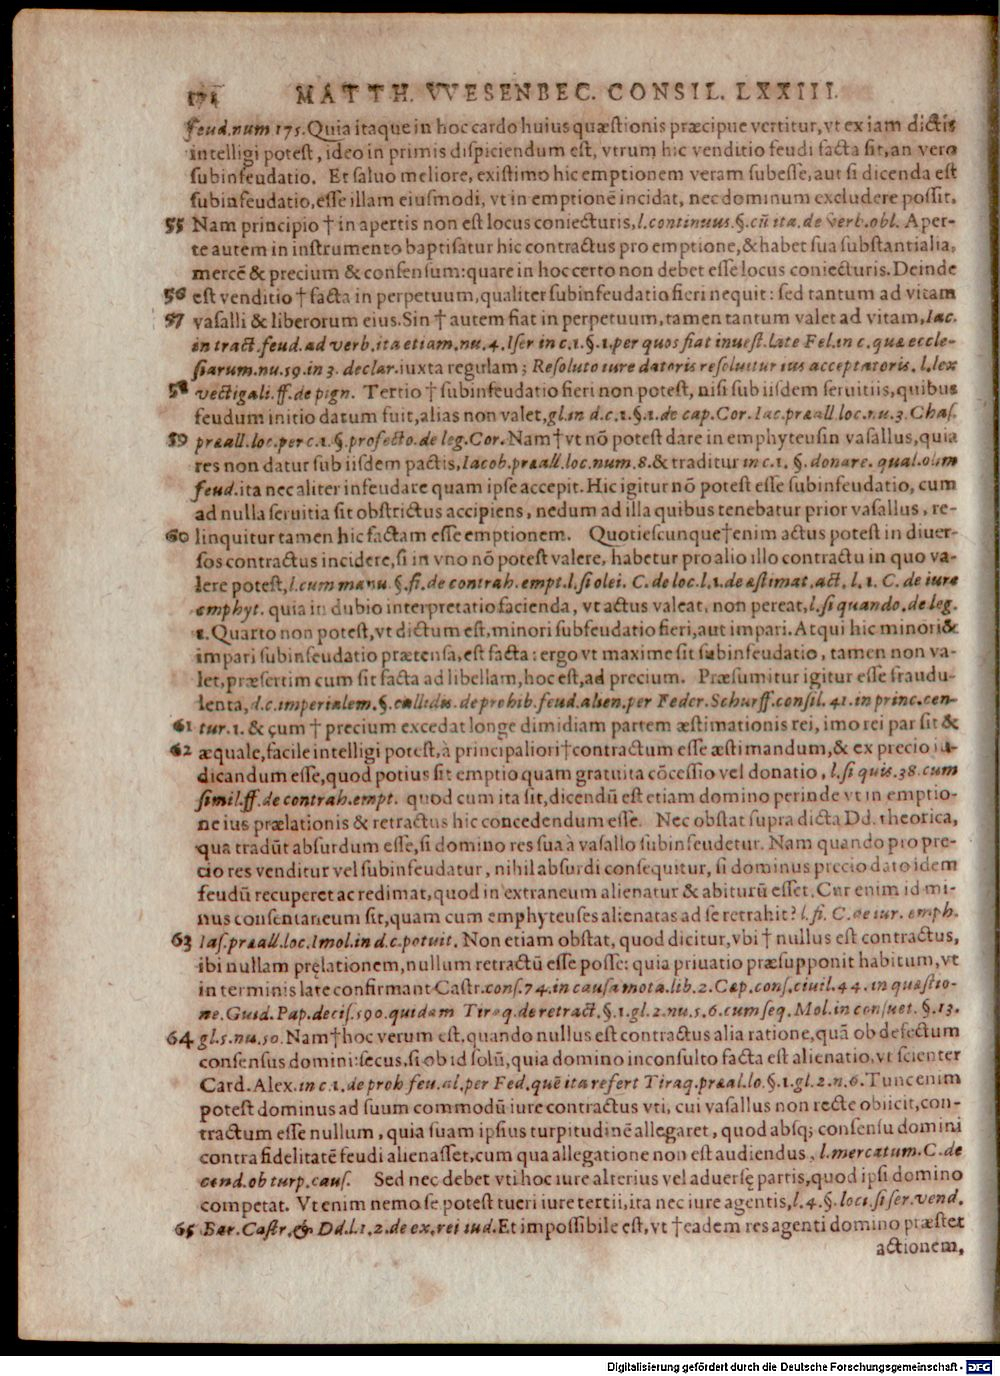 171 MATTH. VVESENBEC. CONSIL. LXXIII.
feud.num 175. Quia itaque in hoc cardo huius quæstionis præcipue vertitur, vt ex iam dictis
intelligi potest, ideo in primis dispiciendum est, vtrum hic venditio feudi facta sit, an vero
subinfeudatio. Et saluo meliore, existimo hic emptionem veram subesse, aut si dicenda est
subinfeudatio, esse illam eiusmodi, vt in emptionē incidat, nec dominum excludere possit.
55 Nam principio † in apertis non est locus coniecturis, l.continuus.§.cū ita.de verb.obl. Aper-
te autem in instrumento baptisatur hic contractus pro emptione, & habet sua substantialia,
mercē & precium & consensum: quare in hoc certo non debet esse locus coniecturis. Deinde
56 est venditio † facta in perpetuum, qualiter subinfeudatio fieri nequit: sed tantum ad vitam
57 vasalli & liberorum eius. Sin † autem fiat in perpetuum, tamen tantum valet ad vitam, Iac.
in tract.feud.ad verb.ita etiam.nu.4.Iser in c.1.§.1.per quos fiat inuest.late Fel.in c.quæ eccle-
siarum.nu.59.in 3. declar. iuxta regulam; Resoluto iure datoris resoluitur ius acceptatoris. l.lex
58 vectigali.ff.de pign. Tertio † subinfeudatio fieri non potest, nisi sub iisdem seruitiis, quibus
feudum initio datum fuit, alias non valet, gl.in d.c.1.§.1.de cap.Cor.Iac.præall.loc.nu.3.Chas.
59 præall.loc.per c.1.§.profecto.de leg.Cor. Nam † vt nō potest dare in emphyteusin vasallus, quia
res non datur sub iisdem pactis, Iacob.præall.loc.num.8. & traditur in c.1. §. donare. qual.olim
feud. ita nec aliter infeudare quam ipse accepit. Hic igitur nō potest esse subinfeudatio, cum
ad nulla seruitia sit obstrictus accipiens, nedum ad illa quibus tenebatur prior vasallus, re-
60 linquitur tamen hic factam esse emptionem. Quotiescunque † enim actus potest in diuer-
sos contractus incidere, si in vno nō potest valere, habetur pro alio illo contractu in quo va-
lere potest, l.cum manu.§.fi.de contrah.empt.l.si olei. C.de loc.l.1.de æstimat.act. l. 1. C. de iure
emphyt. quia in dubio interpretatio facienda, vt actus valeat, non pereat, l.si quando.de leg.
1. Quarto non potest, vt dictum est, minori subfeudatio fieri, aut impari. Atqui hic minori &
impari subinfeudatio prætensa, est facta: ergo vt maxime sit subinfeudatio, tamen non va-
let, præsertim cum sit facta ad libellam, hoc est, ad precium. Præsumitur igitur esse fraudu-
lenta, d.c.imperialem.§.callidis.de prohib.feud.alien.per Feder.Schurff.consil.41.in princ.cen-
61 tur.1. & cum † precium excedat longe dimidiam partem æstimationis rei, imo rei par sit &
62 æquale, facile intelligi potest, à principaliori † contractum esse æstimandum, & ex precio iu-
dicandum esse, quod potius sit emptio quam gratuita cōcessio vel donatio, l.si quis.38.cum
simil.ff.de contrah.empt. quod cum ita sit, dicendū est etiam domino perinde vt in emptio-
ne ius prælationis & retractus hic concedendum esse. Nec obstat supra dicta Dd. theorica,
qua tradūt absurdum esse, si domino res sua à vasallo subinfeudetur. Nam quando pro pre-
cio res venditur vel subinfeudatur, nihil absurdi consequitur, si dominus precio dato idem
feudū recuperet ac redimat, quod in extraneum alienatur & abiturū esset. Cur enim id mi-
nus consentaneum sit, quam cum emphyteuses alienatas ad se retrahit? l.fi. C.de iur. emph.
63 Ias.præall.loc.Imol.in d.c.potuit. Non etiam obstat, quod dicitur, vbi † nullus est contractus,
ibi nullam pręlationem, nullum retractū esse posse: quia priuatio præsupponit habitum, vt
in terminis late confirmant Castr.cons.74.in causa mota.lib.2.Cap.cons.ciuil.44.in quæstio-
ne.Guid.Pap.decis.590.quidam Tiraq.de retract.§.1.gl.2.nu.5.6.cum seq.Mol.in consuet. §.13.
64 gl.5.nu.50. Nam † hoc verum est, quando nullus est contractus alia ratione, quā ob defectum
consensus domini: secus, si ob id solū, quia domino inconsulto facta est alienatio, vt scienter
Card. Alex. in c.1.de proh feu.al.per Fed.quē ita refert Tiraq.præal.lo.§.1.gl.2.n.6. Tunc enim
potest dominus ad suum commodū iure contractus vti, cui vasallus non recte obiicit, con-
tractum esse nullum, quia suam ipsius turpitudinē allegaret, quod absq; consensu domini
contra fidelitatē feudi alienasset, cum qua allegatione non est audiendus, l.mercatum.C.de
cond.ob turp.caus. Sed nec debet vti hoc iure alterius vel aduersę partis, quod ipsi domino
competat. Vt enim nemo se potest tueri iure tertii, ita nec iure agentis, l.4.§.loci.si ser.vend.
65 Bar.Castr.& Dd.l.1.2.de ex.rei iud. Et impossibile est, vt † eadem res agenti domino præstet
actionem,
Digitalisierung gefördert durch die Deutsche Forschungsgemeinschaft - DFG